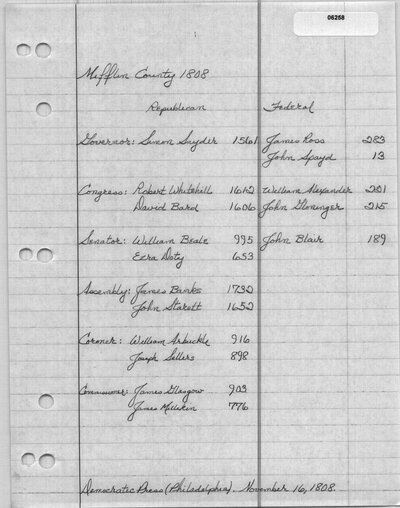 06258
Mifflin County 1808
Republican Federal
Governor: Simon Snyder 1561 James Ross 283
John Spayd 13
Congress: Robert Whitehill 1612 William Alexander 221
David Bard 1606 John Gloninger 215
Senator: William Beale 995 John Blair 189
Ezra Doty 653
Assembly: James Banks 1732
John Starett 1652
Coroner: William Arbuckle 916
Joseph Sellers 898
Commissioner: James Glasgow 903
James Milliken 776
Democratic Press (Philadelphia). November 16, 1808.